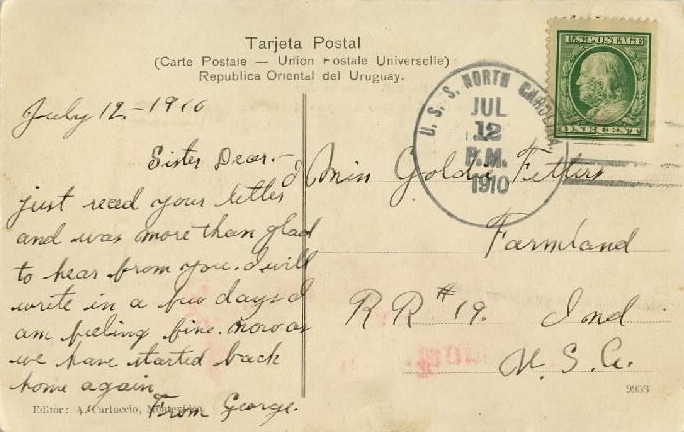 Tarjeta Postal
(Carte Postale — Union Postale Universelle)
Republica Oriental del Uruguay.
U.S. POSTAGE
ONE CENT
U. S. S. NORTH CAROLINA
JUL
12
P.M.
1910
July 12.-1910
Sister Dear.- I
just recd your letter
and was more than glad
to hear from you. I will
write in a few days I
am feeling fine. now as
we have started back
home again
From George.
Miss Goldie Fetters
Farmland
RR #19. Ind
U.S.A.
Editor: A. Carluccio, Montevideo
9953